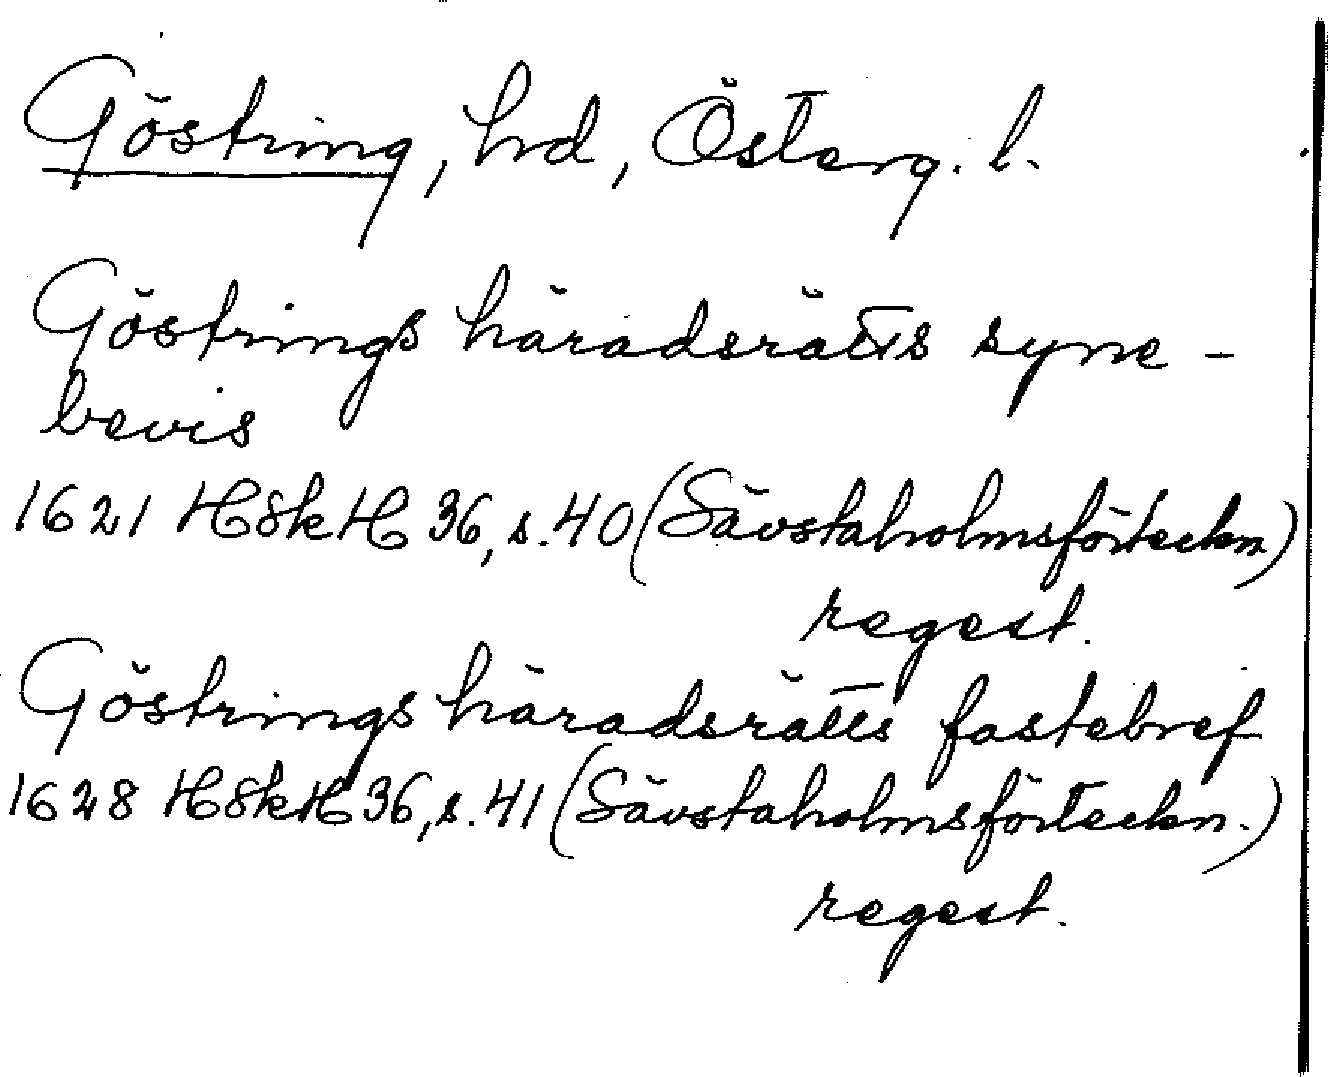 Göstring, hd, Österg. l.
Göstrings häradsrätts syne-
bevis
1621 HSkH 36, s. 40 (Sävstaholmsförteckn)
regest.
Göstrings häradsrätts fastebref
1628 HSkH 36, s. 41 (Sävstaholmsförteckn.)
regest.